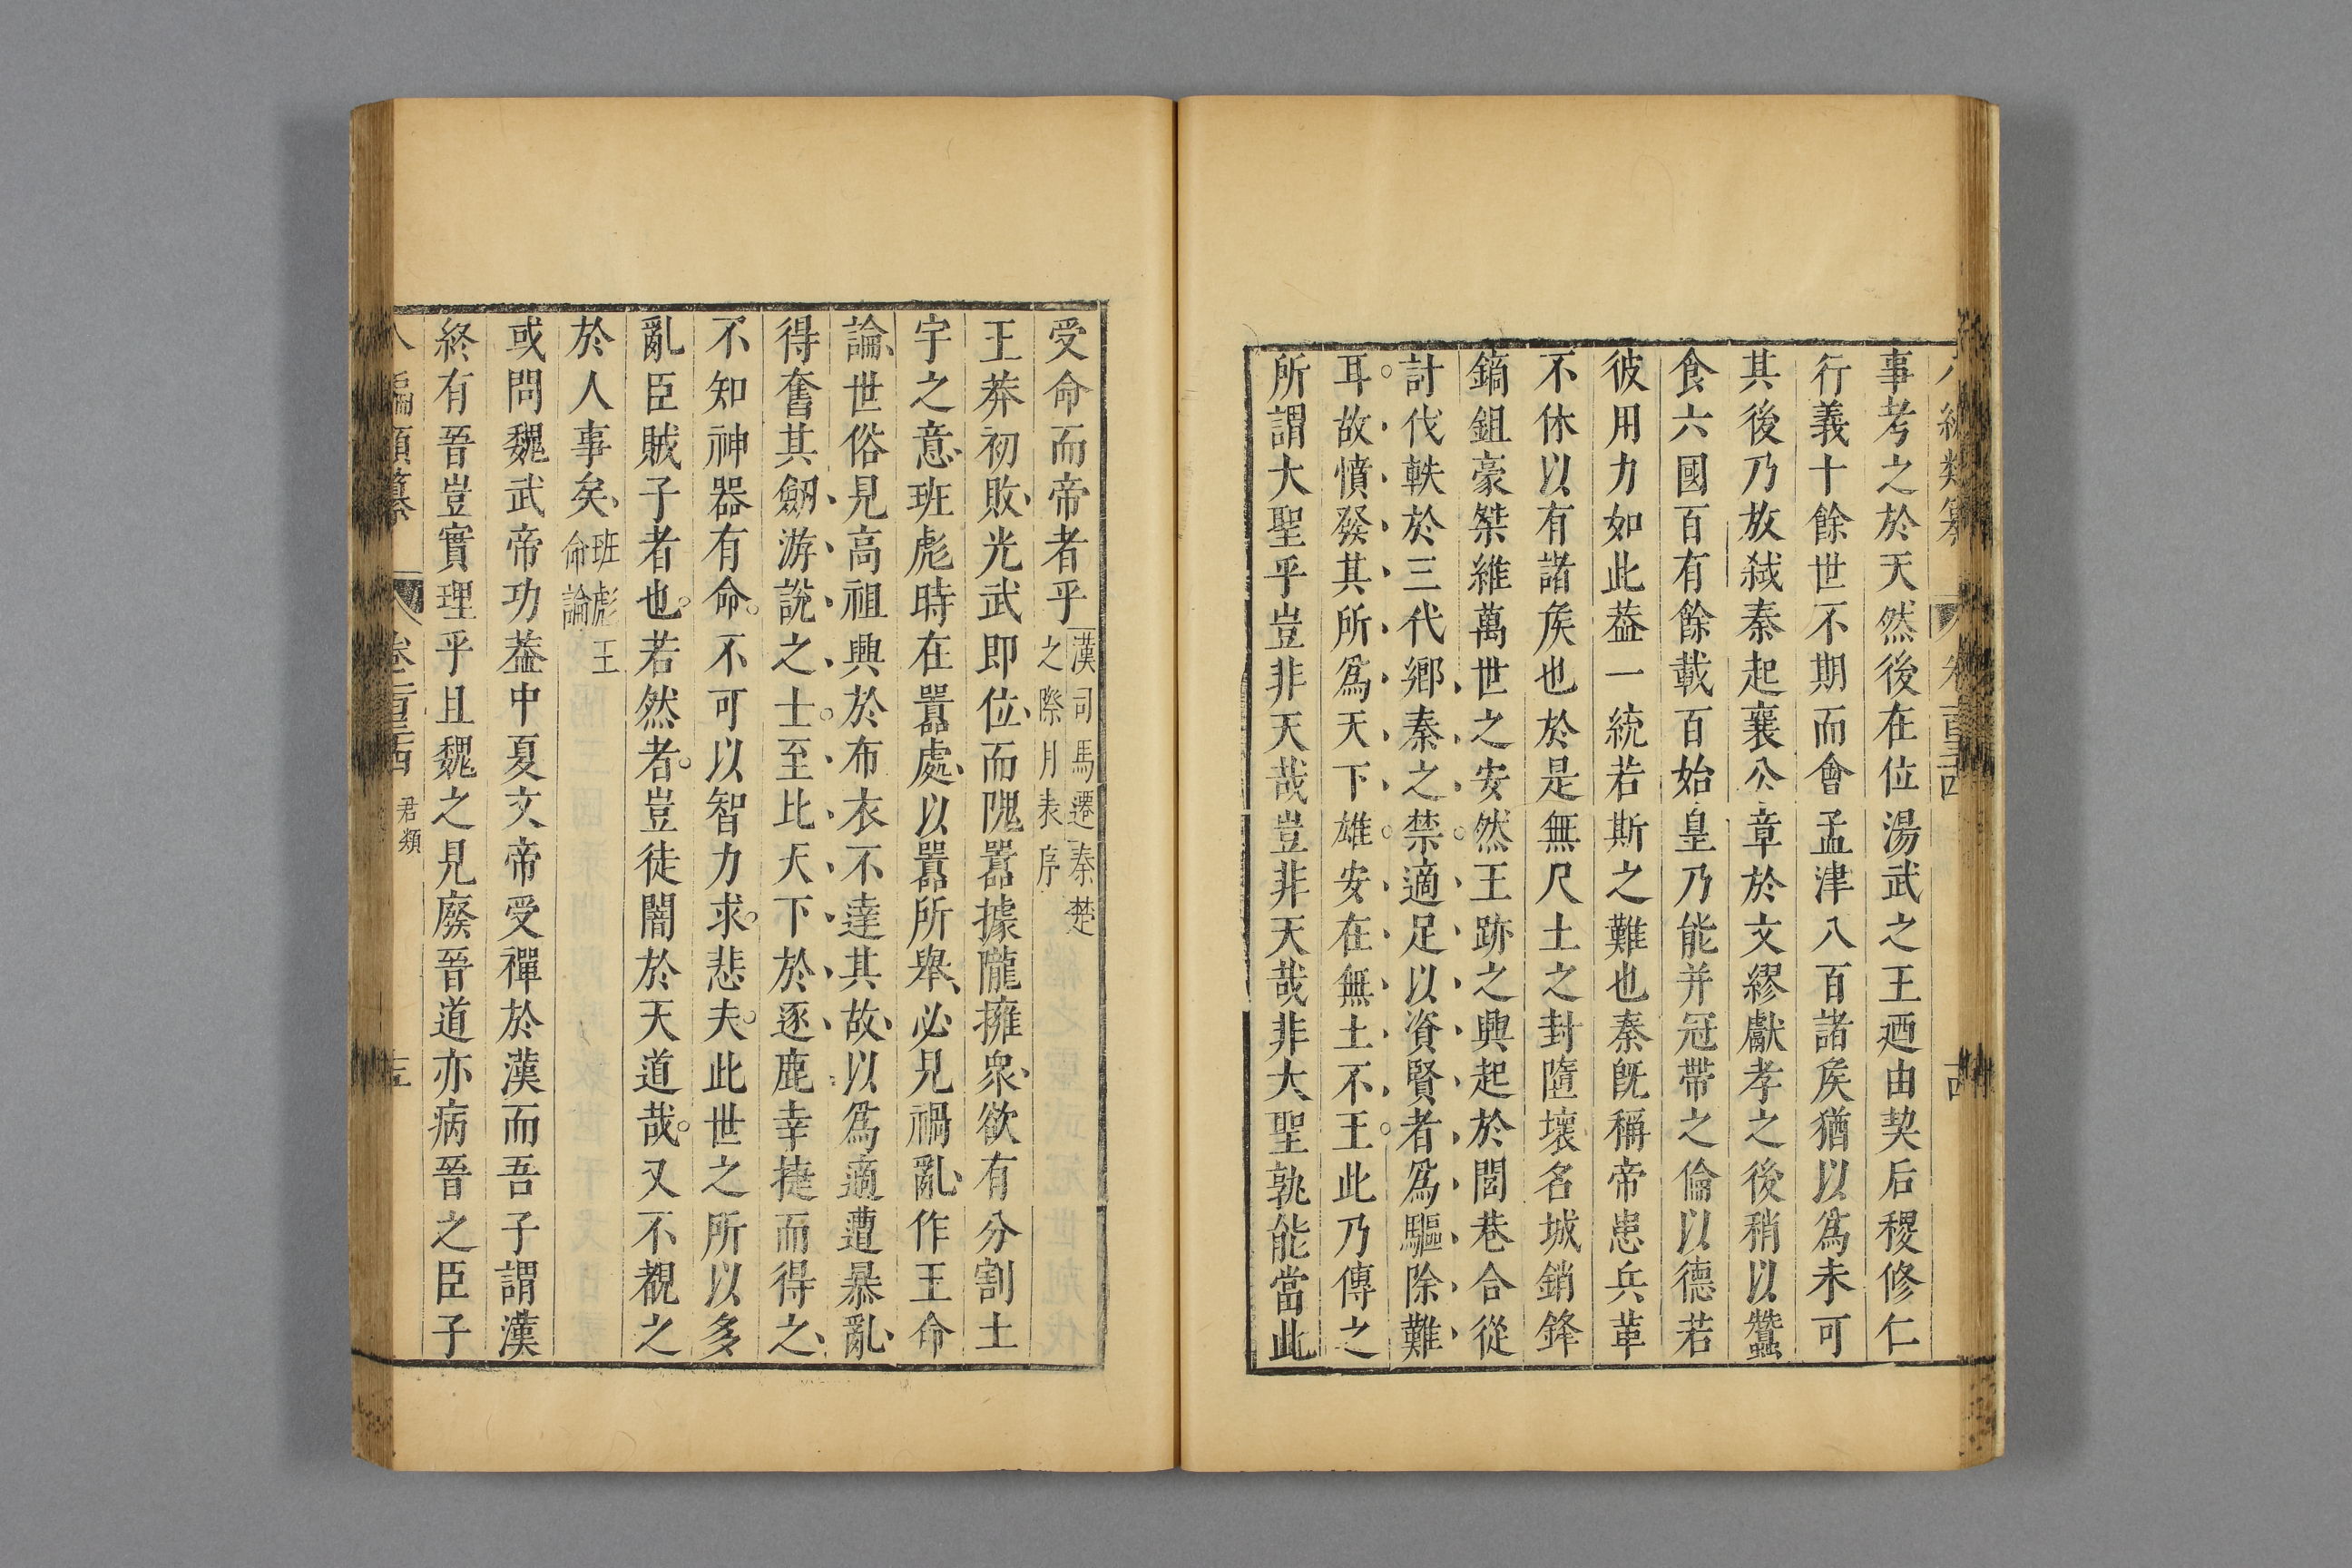 事考之於天然後在位湯武之王廼由契后稷修仁
行義十餘世不期而會孟津八百諸矦猶以爲未可
其後乃放弑秦起襄公章於文繆獻孝之後稍以蠶
食六國百有餘載百始皇乃能并冠帶之倫以德若
彼用力如此葢一統若斯之難也秦旣稱帝患兵革
不休以有諸矦也於是無尺土之封隳壞名城銷鋒
鏑鉏豪桀維萬世之安然王跡之興起於閭巷合從
計伐軼於三代鄉秦之禁適足以資賢者爲驅除難
耳故憤發其所爲天下雄安在無土不王此乃傳之
所謂大聖乎豈非天哉豈非天哉非大聖孰能當此
受命而帝者乎漢司馬遷秦楚之際月表序
王莽初敗光武即位而隗囂據隴擁衆欲有分割土
宇之意班彪時在囂處以囂所舉必見禍亂作王命
論世俗見高祖興於布衣不達其故以爲適遭暴亂
得奮其劒游說之士至比天下於逐鹿幸捷而得之
不知神器有命不可以智力求悲夫此世之所以多
亂臣賊子者也若然者豈徒闇於天道哉又不覩之
於人事矣班彪王命論
或問魏武帝功葢中夏文帝受禪於漢而吾子謂漢
終有晉豈實理乎且魏之見廢晉道亦病晉之臣子
君類